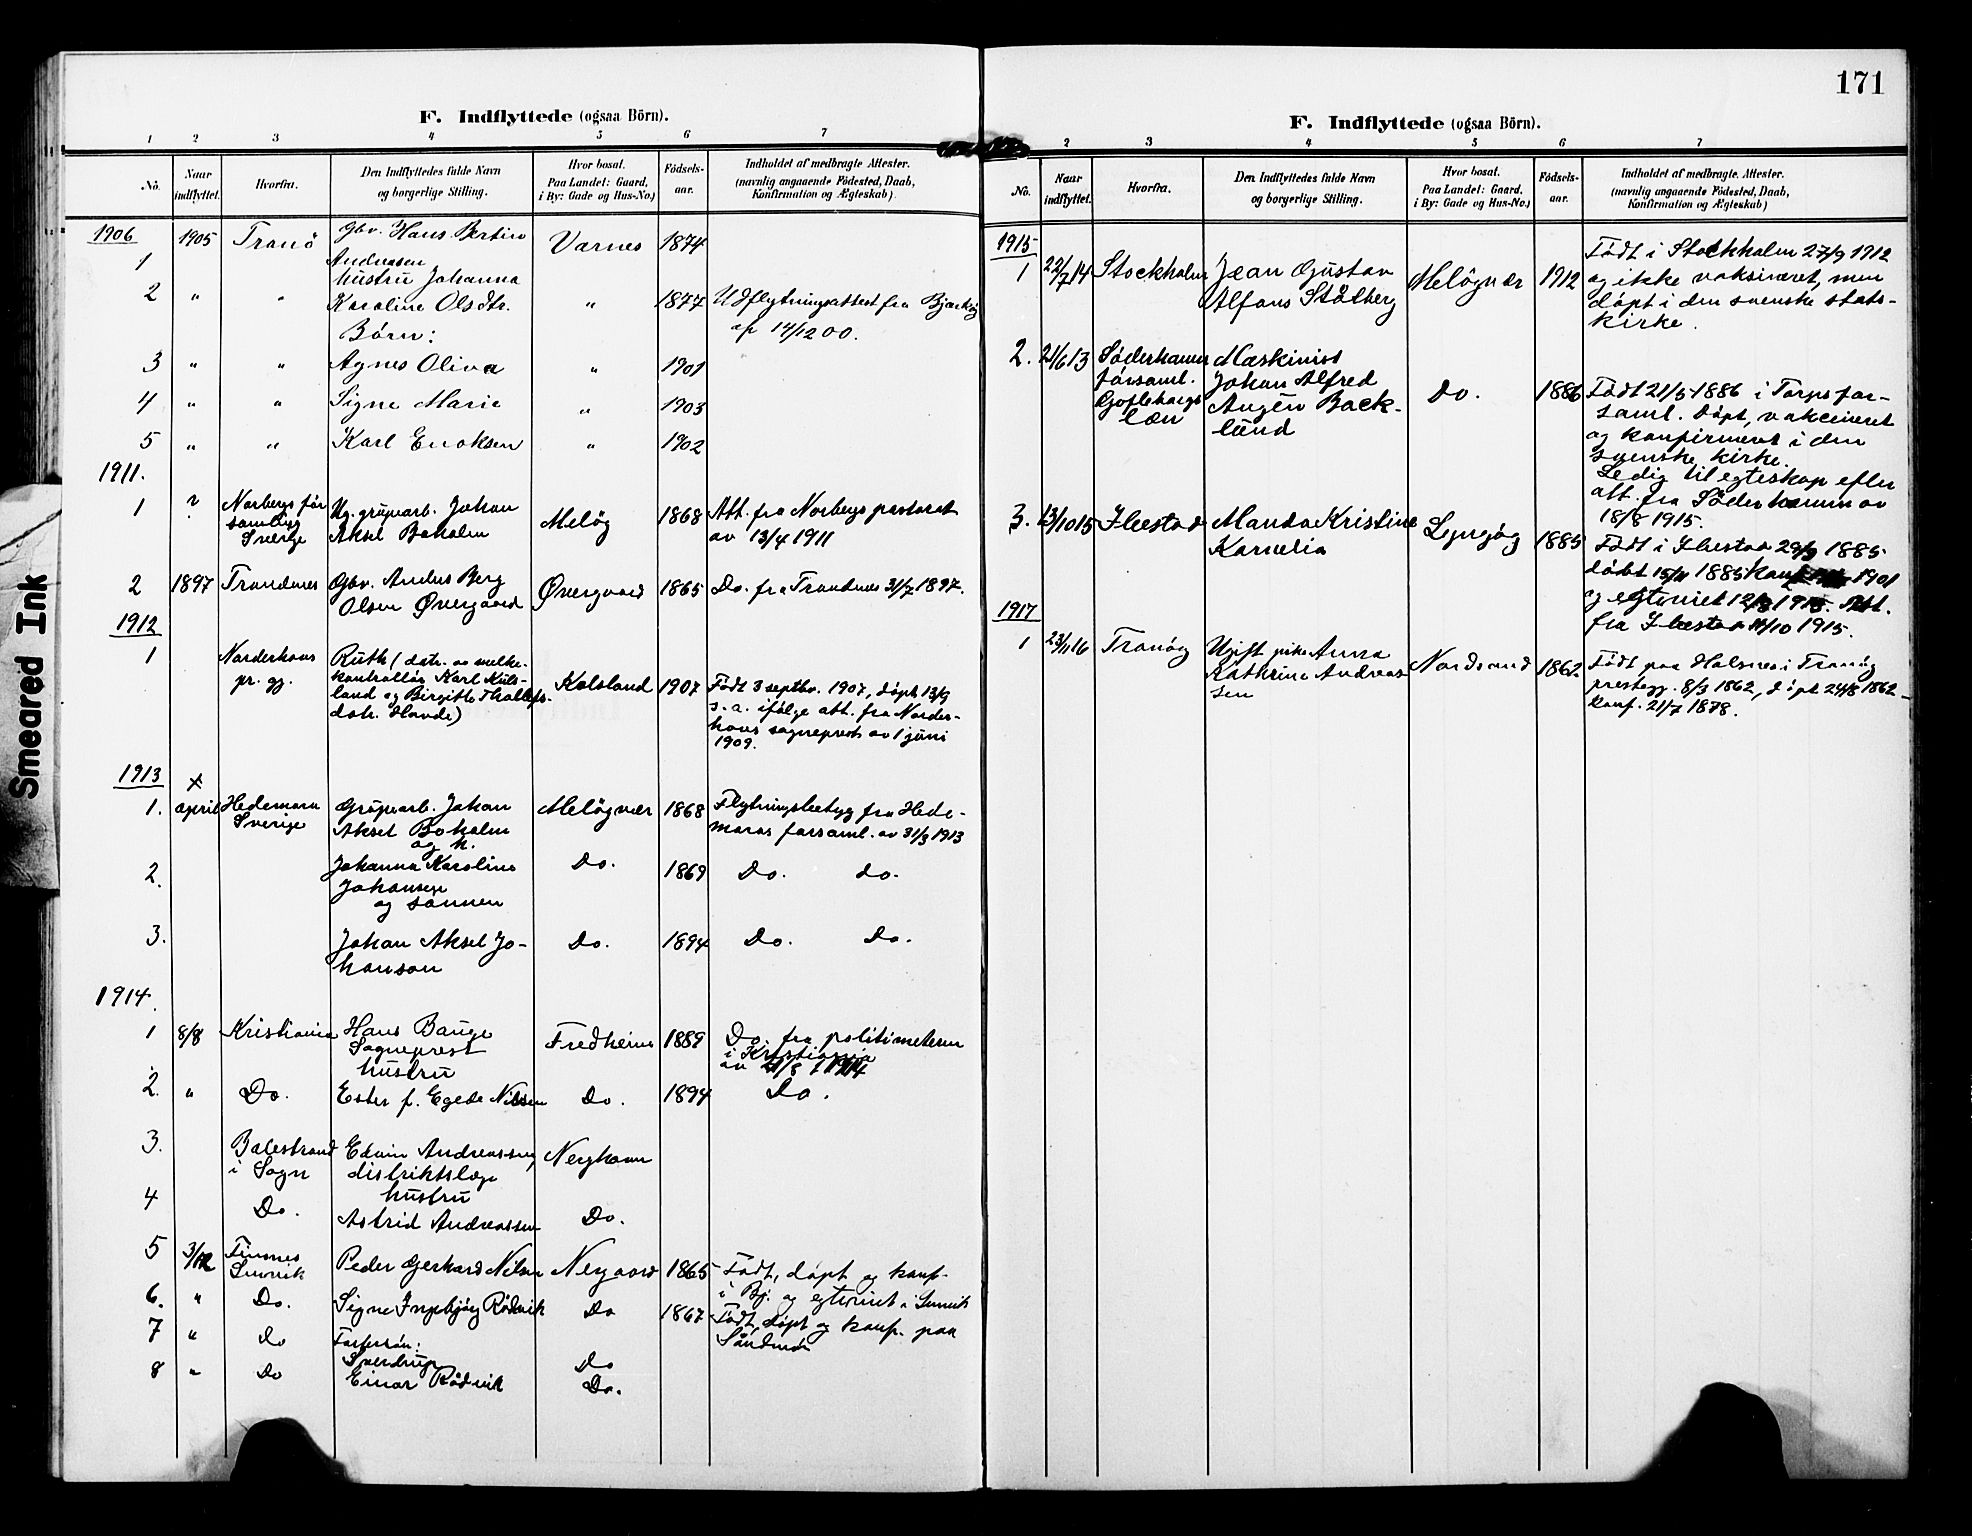 171
F. Indflyttede (ogsaa Börn).
1 2 3 4 5 6 7
No. Naar indflyttet. Hvorfra. Den Indflyttedes fulde Navn og borgerlige Stilling. Hvor bosat. Paa Landet: Gaard, i By: Gade og Hus-No.) Födsels-aar. Indholdet af medbragte Attester. (navnlig angaaende Födested, Daab, Konfirmation og Ægteskab)
1906
1 1905 Tranö Gbr. Hans Bertin Andreasen Varnes 1874
hustru Johanna
2 " " Karoline Olsdtr. " 1877 Udflytningsattest fra Bjarköy
af 14/12 00.
Børn:
3 " " Agnes Oliva " 1901
4 " " Signe Marie " 1903
5 " " Karl Enoksen " 1902
1911.
1 ? Norbergs för
samling
Sverge Ug. grubearb. Johan
Aksel Boholm Meløy 1868 Att. fra Norbergs pastorat
av 13/4 1911
2 1897 Trondenes Gbr. Anders Berg
Olsen Øvergaard Øvergaard 1865 Do. fra Trondenes 31/7 1897.
1912
1 Norderhovs
pr. gj. Ruth (datr. av melke-
kontrollør Karl Kuls-
land og Birgitte Thollefs-
datr. Hovde) Kolsland 1907 Født 3 septbr. 1907, døpt 13/9
s.a. ifølge att. fra Norder-
hovs sogneprest av 1 juni
1909.
1913
1. april Hedemora
Sverige Grubearb. Johan
Aksel Boholm
og h. Meløyvær 1868 Flytningsbetyg fra Hede-
moras forsaml. av 31/3 1913
2. Johanna Karolina
Johansen
og sønnen Do. 1869 Do. do.
3. Johan Aksel Jo-
hanson Do. 1894 Do. Do.
1914.
1 8/8 Kristiania Hans Bauge
Sogneprest
hustru Fredheim 1889 Do. fra politimesteren
i Kristiania
2. " Do. Ester f. Egede Nilssen Do. 1894 Do.
3. Balestrand
i Sogn Edvin Andreassen
distriktslæge
hustru Nerghavn
4 Do. Astrid Andreassen Do.
5 3/12 Finsnes
Lenvik Peder Gerhard Nilsen Nergaard 1865 Født, døpt og konf.
i Bj. og egteviet i Lenvik
6. " Do. Signe Ingebjørg Rødvik Do 1867 Født, døpt og konf. paa
Søndmør
7 " Do Fostersøn:
Sverdrup Do
8 " Do Einar Rødvik Do.
F. Indflyttede (ogsaa Börn).
2 3 4 5 6 7
No. Naar indflyttet. Hvorfra. Den Indflyttedes fulde Navn og borgerlige Stilling. Hvor bosat. Paa Landet: Gaard, i By: Gade og Hus-No.) Födsels-aar. Indholdet af medbragte Attester. (navnlig angaaende Födested, Daab, Konfirmation og Ægteskab)
1915
1 22/7 14 Stockholm Jean Gustav
Alfons Stålberg Meløyvær 1912 Født i Stockholm 27/9 1912
og ikke vaksineret, men
døpt i den svenske stats-
kirke.
2. 21/6 13 Söderhamn
församl.
Gjofleborgs
læn Maskinist
Johan Alfred
Angén Back-
lund Do. 1886 Født 21/5 1886 i Torps for-
saml. døpt, vakcineret
og konfirmert i den
svenske kirke.
Ledig til egteskap efter
att. fra Söderhamn av
18/8 1915.
3. 13/10 15 Ibestad Manda Kristine
Kornelia 1885 Født i Ibestad 29/9 1885
døbt 15/11 1885 konf. 1901
og egteviet 12/9 1915. Att.
fra Ibestad 11/10 1915.
1917
1 23/1 16 Tranøy Ugift pike Anna
Kathrine Andreas-
sen Nordsand 1862 Født paa Holsnes i Tranøy
prestegj. 8/3 1862, døpt 24/8 1862
konf. 21/7 1878.
Smeared Ink